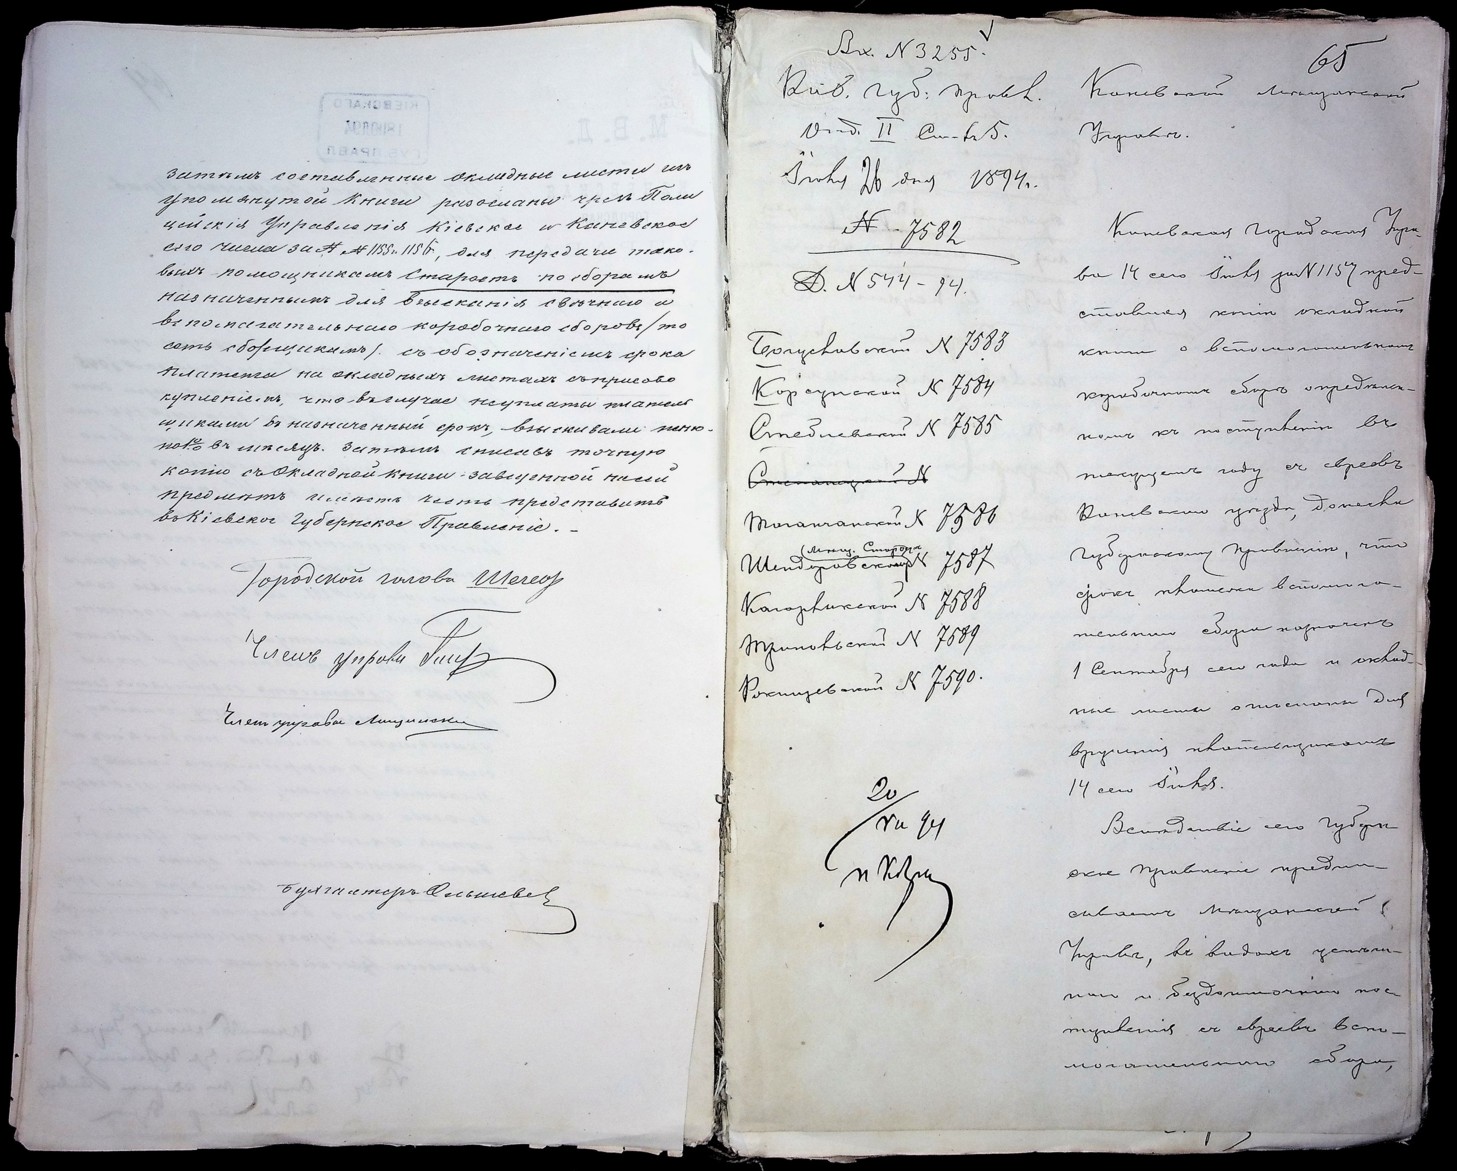 затѣмъ составленные окладные листы изъ
упомянутой книги разосланы чрезъ Поли
цейскія Управленія Кіевское и Каневское
сего числа за № № 1155 и 1156, для передачи тако-
выхъ помощникамъ Старостъ по сборамъ
назначеннымъ для взысканія свѣчнаго и
вспомагательнаго коробочнаго сборовъ /то
есть сборщикамъ/. съ обозначеніемъ срока
платежа на окладныхъ листахъ съ присово
купленіемъ, что въ случае неуплаты плател
щиками въ назначенный срокъ, взыскивали пеню-
по % въ мѣсяцъ. Затѣмъ списавъ точную
копію съ Окладной книги заведенной на сей
предмѣтъ имѣетъ честь представить
въ Кіевское Губернское Правленіе. -
Городской голова
Членъ управы
Членъ управы
Бухгалтеръ
Вх. N 3255.
Кіев. Губ. Правл.
Отд. II Ст-лъ 5.
Іюля 26 дня 1894 г.
N - 7582
Д. N 544 - 94.
Богуславской N 7583
Корсунской N 7584
Стеблевской N 7585
Степанецкой N
Таганчанской N 7586
(Мѣщ. Старостѣ
Шендеровской N 7587
Кагарлыкской N 7588
Трипольской N 7589
Ржищевской N 7590.
20/VII 94
65
Каневской Мѣщанской
Управѣ.
Каневская Городская Упра-
ва 14 сего Іюля за N 1157 пред-
ставляя копію окладной
книги о вспомогательномъ
коробочномъ сборѣ опредѣлен-
номъ къ поступленію въ
текущемъ году съ евреевъ
Каневскаго уѣзда, донесла
Губернскому Правленію, что
срокъ платежа вспомога-
тельнаго сбора назначенъ
1 Сентября сего года и оклад-
ные листы отосланы для
врученія плательщикамъ
14 сего Іюля.
Вслѣдствіе сего Губерн-
ское Правленіе предпи-
сываетъ Мѣщанской
Управѣ, въ видахъ успѣш-
наго и бездоимочнаго пос-
тупленія съ евреевъ вспо-
могательнаго сбора,